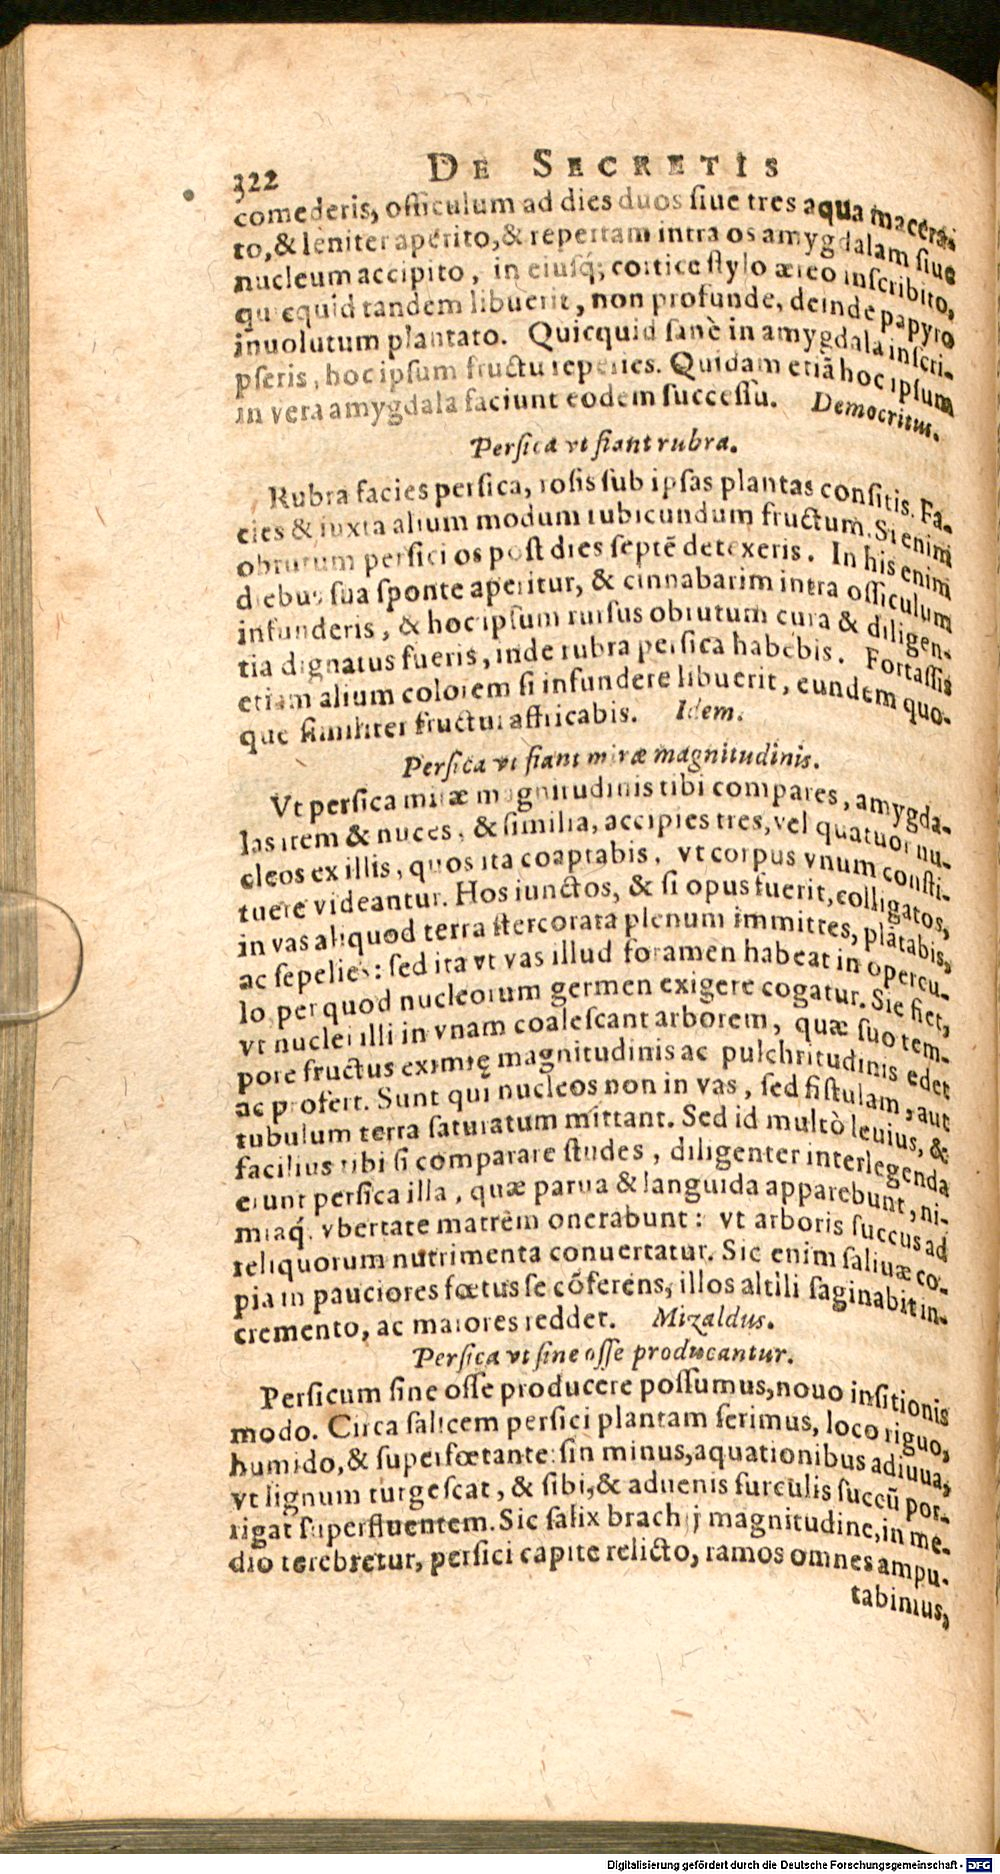 322 DE SECRETIS
comederis, officulum ad dies duos siue tres aqua macera-
to, & leniter aperito, & repertam intra os amygdalam siue
nucleum accipito, in eiusq́; cortice stylo æreo inscribito,
quęquid tandem libuerit, non profunde, deinde papyro
inuolutum plantato. Quicquid sanè in amygdala inscri-
pseris, hoc ipsum fructu reperies. Quidam etiā hoc ipsum
in vera amygdala faciunt eodem successu. Democritus.
Persica vt fiant rubra.
Rubra facies persica, rosis sub ipsas plantas consitis. Fa-
cies & iuxta alium modum rubicundum fructum. Si enim
obrutum persici os post dies septē detexeris. In his enim
diebus sua sponte aperitur, & cinnabarim intra officulum
infunderis, & hoc ipsum rursus obrutum cura & diligen-
tia dignatus fueris, inde rubra persica habebis. Fortassis
etiam alium colorem si infundere libuerit, eundem quo-
que similiter fructui affricabis. Idem.
Persica vt fiant miræ magnitudinis.
Vt persica miræ magnitudinis tibi compares, amygda-
las item & nuces, & similia, accipies tres, vel quatuor nu-
cleos ex illis, quos ita coaptabis, vt corpus vnum consti-
tuere videantur. Hos iunctos, & si opus fuerit, colligatos,
in vas aliquod terra stercorata plenum immittes, plātabis,
ac sepelies: sed ita vt vas illud foramen habeat in opercu-
lo, per quod nucleorum germen exigere cogatur. Sic fiet,
vt nuclei illi in vnam coalescant arborem, quæ suo tem-
pore fructus eximię magnitudinis ac pulchritudinis edet
ac profert. Sunt qui nucleos non in vas, sed fistulam, aut
tubulum terra saturatum mittant. Sed id multò leuius, &
facilius tibi si comparare studes, diligenter interlegenda
erunt persica illa, quæ parua & languida apparebunt, ni-
miaq́. vbertate matrem onerabunt: vt arboris succus ad
reliquorum nutrimenta conuertatur. Sic enim saliuæ co-
pia in pauciores fœtus se cōferens, illos altili saginabit in-
cremento, ac maiores reddet. Mizaldus.
Persica vt sine osse producantur.
Persicum sine osse producere possumus, nouo insitionis
modo. Circa salicem persici plantam serimus, loco riguo,
humido, & superfœtante: sin minus, aquationibus adiuua,
vt lignum turgescat, & sibi, & aduenis surculis succū por-
rigat superfluentem. Sic salix brachij magnitudine, in me-
dio terebretur, persici capite relicto, ramos omnes ampu-
tabimus,
Digitalisierung gefördert durch die Deutsche Forschungsgemeinschaft - DFG